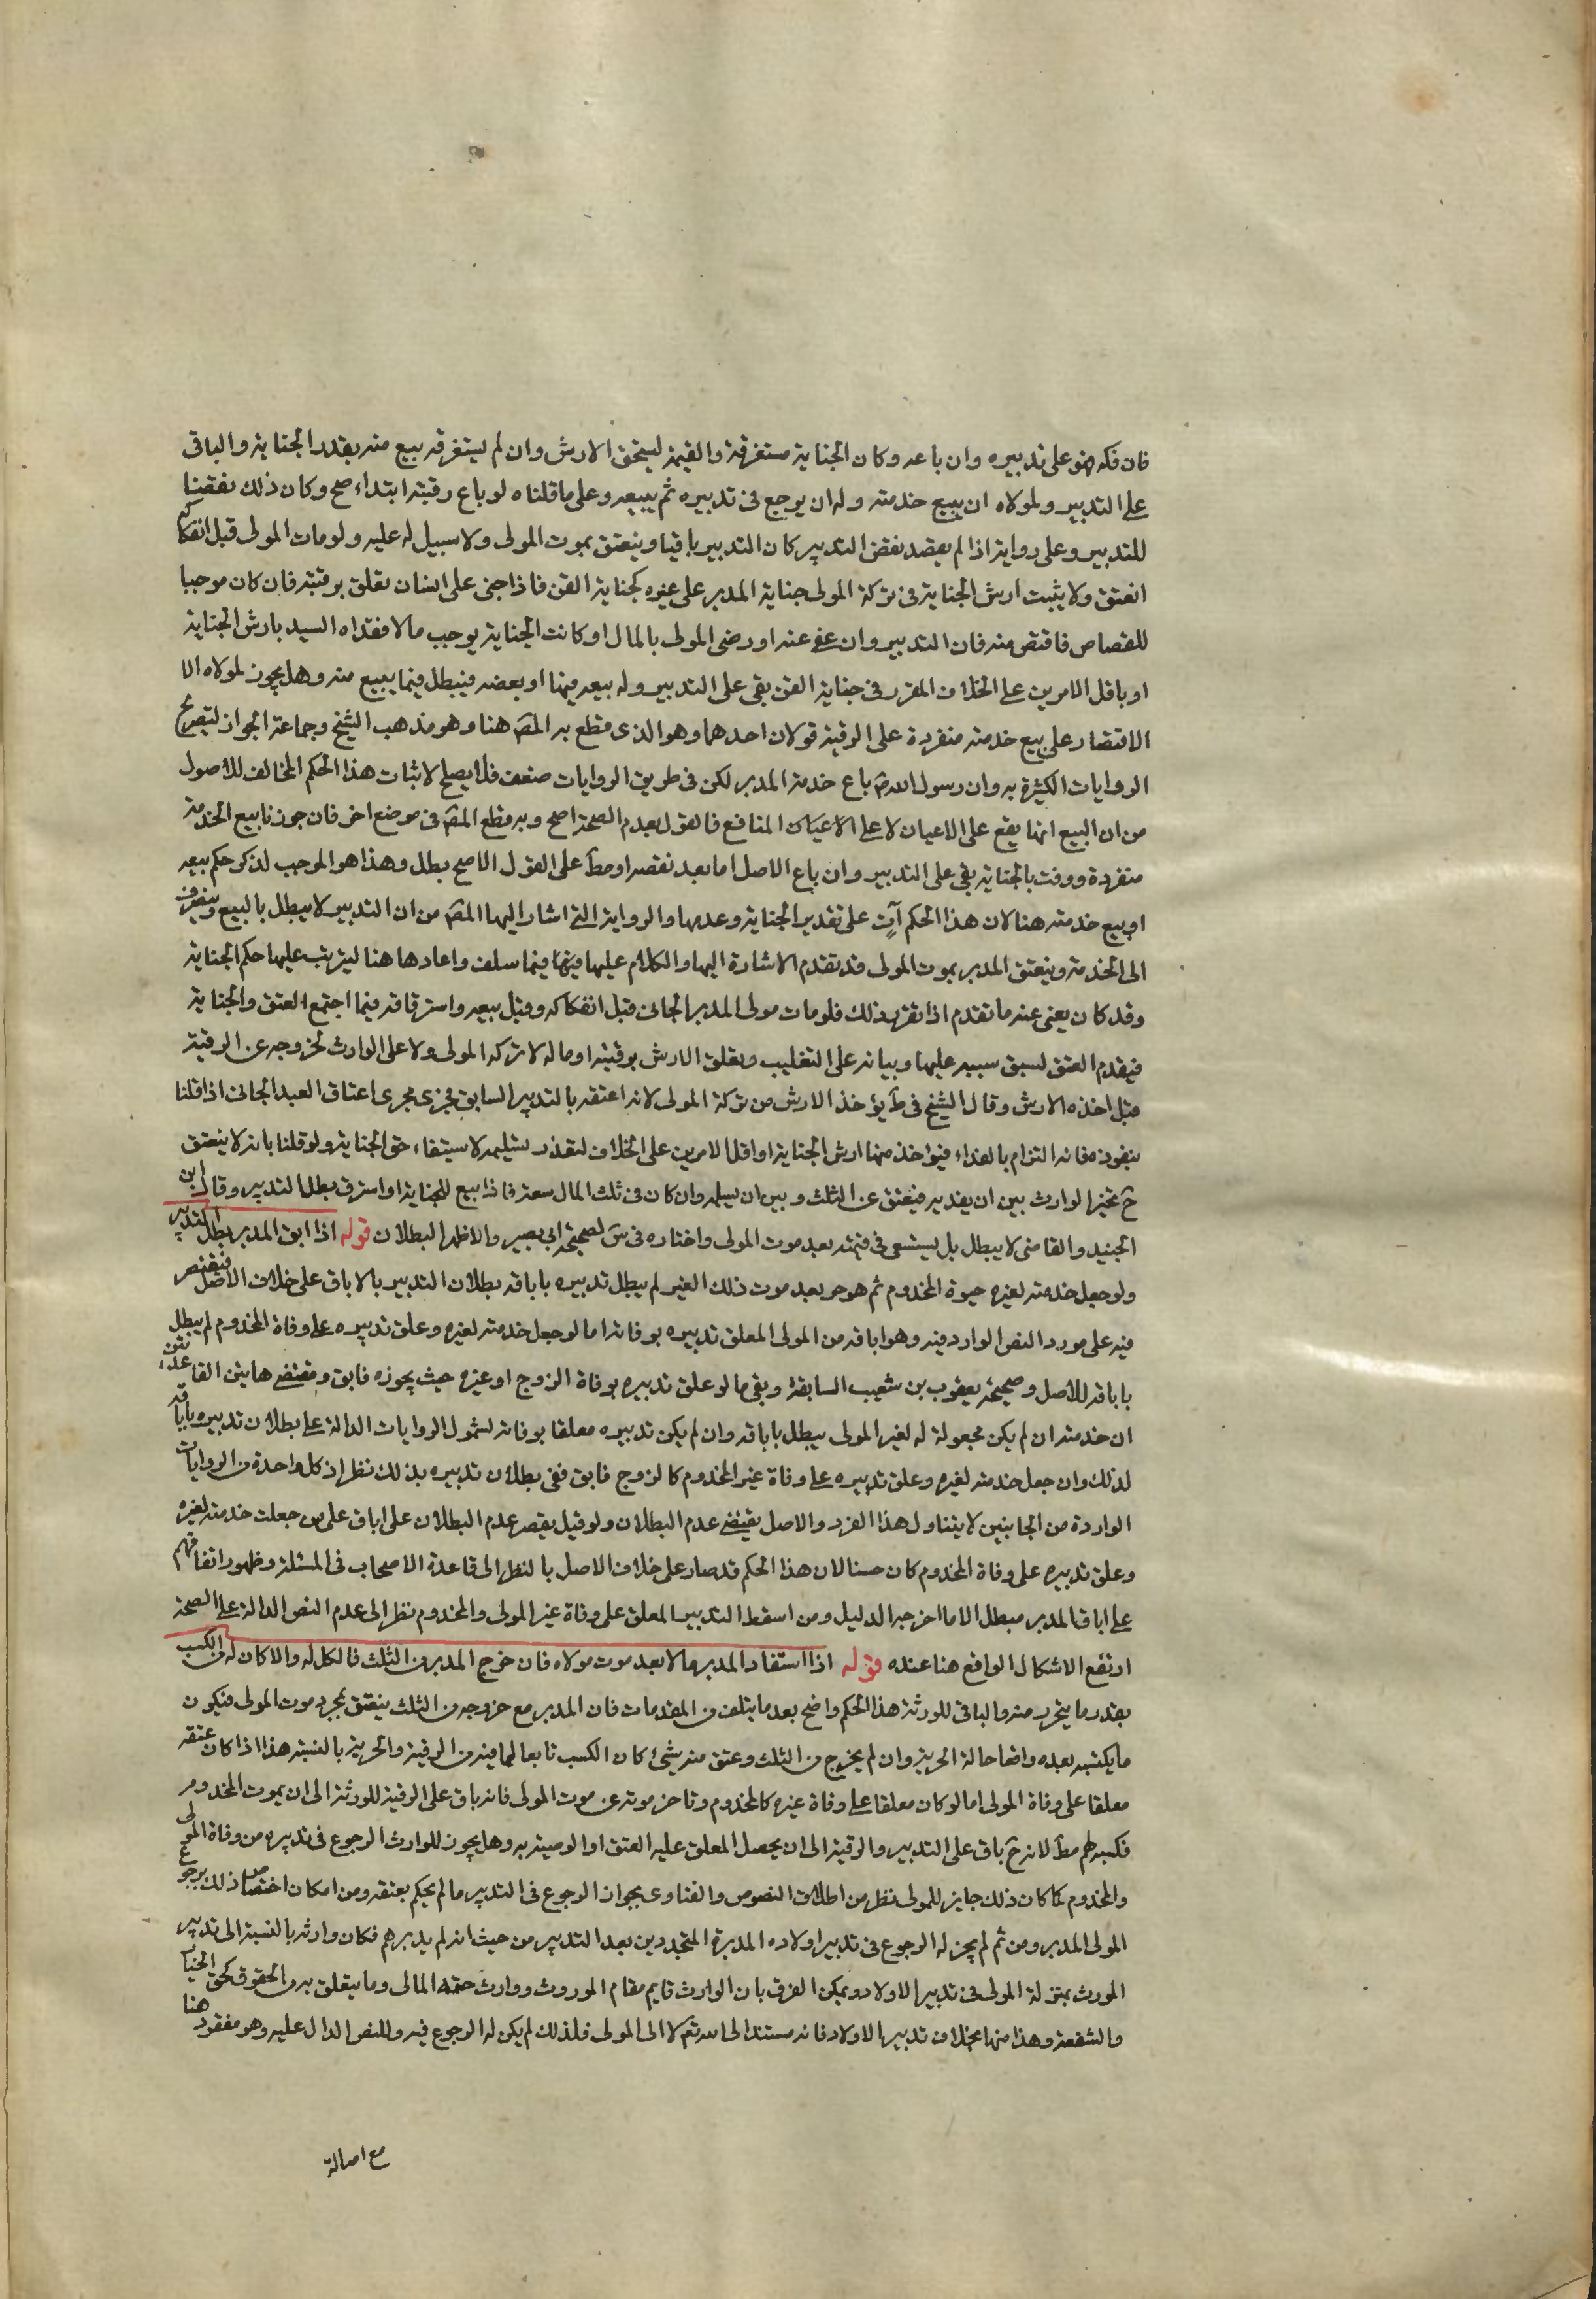 فان فكه فهو على تدبيره وان باعه وكان الجناية مستغرقة والقيمة ليستحق الارش وان لم يستغرقه بيع منه بقدر الجناية والباقى
على التدبير ولمولاه ان يبيع خدمته وله ان يرجع فى تدبيره ثم يبيعه وعلى ما قلناه لو باع رقبته ابتداء صح وكان ذلك نقضا
للتدبير وعلى رواية اذا لم يقصد نقض التدبير كان التدبير باقيا وينعتق بموت المولى ولا سبيل له عليه ولو مات المولى قبل افتكاكه
انعتق ولا يثبت ارش الجناية فى تركة المولى جناية المدبر على غيره كجناية القن فاذا جنى على انسان تعلق برقبته فان كان موجبا
للقصاص فاقتص منه فان التدبير وان عفى عنه او رضى المولى بالمال او كانت الجناية يوجب مالا ففداه السيد بارش الجناية
او باقل الامرين على الخلاف المقرر فى جناية القن بقى على التدبير وله بيعه فيها او بعضه فيبطل فيما يبيع منه وهل يجوز لمولاه الا
الاقتصار على بيع خدمته منفردة على الرقبة قولان احدهما وهو الذى قطع به المصَ هنا وهو مذهب الشيخ وجماعة الجواز لتصريح
الروايات الكثيرة به وان رسول اللهَ ص باع خدمة المدبر لكن فى طريق الروايات ضعف فلا يصلح لاثبات هذا الحكم المخالف للاصول
من ان البيع انما يقع على الاعيان لا على الاعيان المنافع فالقول بعدم الصحة اصح وبه قطع المصَ فى موضع اخر فان جوزنا بيع الخدمة
منفردة ووفت بالجناية بقى على التدبير وان باع الاصل اما بعد نقضه او مطَ على القول الاصح بطل وهذا هو الموجب لذكر حكم بيعه
او بيع خدمته هنا لان هذا الحكم آتٍ على تقدير الجناية وعدمها والرواية التى اشار اليها المصَ من ان التدبير لا يبطل بالبيع وينصرف
الى الخدمة وينعتق المدبر بموت المولى قد تقدم الاشارة اليها والكلام عليها فيها فيما سلف واعادها هنا ليرتب عليها حكم الجناية
وقد كان يغنى عنه ما تقدم اذا تقرر ذلك فلو مات مولى المدبر الجانى قبل افتكاكه وقبل بيعه واسترقاقه فيما اجتمع العتق والجناية
فيقدم العتق لسبق سببه عليها وبنائه على التغليب وتعلق الارش برقبته او ماله لا تركه المولى ولا على الوارث لخروجه عن الرقية
قبل اخذه الارش وقال الشيخ فى طَ يؤخذ الارش من تركة المولى لانه اعتقه بالتدبير السابق فجرى مجرى اعتاق العبد الجانى اذا قلنا
بنفوذه فانه التزام بالفداء فيؤاخذ منها ارش الجناية او اقل الامرين على الخلاف لتعذر تسليمه لاستيفاء حق الجناية ولو قلنا بانه لا ينعتق
حَ تخير الوارث بين ان يفديه فينعتق عن الثلث وبين ان يسلمه وان كان فى ثلث المال سعة فاذا بيع للجناية او استرق بطل التدبير وقال ابن
الجنيد والقاضى لا يبطل بل يستسعى فى قيمته بعد موت المولى واختاره فى سَ لصحيحة ابى بصير والاظهر البطلان قوله اذا ابق المدبر بطل التدبير
ولو جعل خدمته لغيره حيوة المخدوم ثم هو حر بعد موت ذلك الغير لم يبطل تدبيره باباقه بطلان التدبير بالاباق على خلاف الاصل فيقتصر
فيه على مورد النص الوارد فيه وهو اباقه من المولى المعلق تدبيره بوفاته اما لو جعل خدمته لغيره وعلق تدبيره على وفاة المخدوم لم يبطل
باباقه للاصل وصحيحة يعقوب بن شعيب السابقة وبقى ما لو علق تدبيره بوفاة الزوج او غيره حيث يجوزه فابق ومقتضى هاتين القاعدتين
ان خدمته ان لم يكن مجعولة له لغير المولى يبطل باباقه وان لم يكن تدبيره معلقا بوفاته لشمول الروايات الدالة على بطلان تدبيره باباقه
لذلك وان جعل خدمته لغيره وعلق تدبيره على وفاة غير المخدوم كالزوج فابق ففى بطلان تدبيره بذلك نظر اذ كل واحدة من الروايات
الواردة من الجانبين لا يتناول هذا الفرد والاصل يقتضى عدم البطلان ولو قيل بقصر عدم البطلان على اباق على من جعلت خدمته لغيره
وعلق تدبيره على وفاة المخدوم كان حسنا لان هذا الحكم قد صار على خلاف الاصل بالنظر الى قاعدة الاصحاب فى المسئلة وظهور اتفاقهم
على اباق المدبر مبطل الا ما اخرجه الدليل ومن اسقط التدبير المعلق على وفاة غير المولى والمخدوم نظر الى عدم النص الدالة على الصحة
ارتفع الاشكال الواقع هنا عنده قوله اذا استفاد المدبر مالا بعد موت مولاه فان خرج المدبر من الثلث فالكل له والا كان له من الكسب
بقدر ما يتحرر منه والباقى للورثة هذا الحكم واضح بعد ما يتلف من المقدمات فان المدبر مع خروجه من الثلث ينعتق بمجرد موت المولى فيكون
ما يكتسبه بعده واقعا حالة الحرية وان لم يخرج من الثلث وعتق منه شئ كان الكسب تابعا لما فيه من الرقية والحرية بالنسبة هذا اذا كان عتقه
معلقا على وفاة المولى اما لو كان معلقا على وفاة غيره كالمخدوم وتاخر موته عن موت المولى فانه باق على الرقية للورثة الى ان يموت المخدوم
فكسبه لهم مطَ لانه حَ باق على التدبير والرقية الى ان يحصل المعلق عليه العتق او الوصية به وهل يجوز للوارث الرجوع فى تدبيره من وفاة المولى
والمخدوم كما كان ذلك جايز للمولى نظر من اطلاق النصوص والفتاوى بجواز الرجوع فى التدبير ما لم يحكم بعتقه ومن امكان اختصاص ذلك برجوع
المولى المدبر ومن ثم لم يجز له الرجوع فى تدبير اولاده المدبرة المتجددين بعد التدبير من حيث انه لم يدبرهم فكان وارثه بالنسبة الى تدبير
المورث بمنزلة المولى فى تدبير الاولاد ويمكن الفرق بان الوارث قايم مقام الموروث ووارث حقه المالى وما يتعلق به من الحقوق كحق الخيار
والشفعة وهذا منها بخلاف تدبير الاولاد فانه مستند الى الله تعَ لا الى المولى فلذلك لم يكن له الرجوع فيه وللنص الدال عليه وهو مفقود هنا
مع اصالة